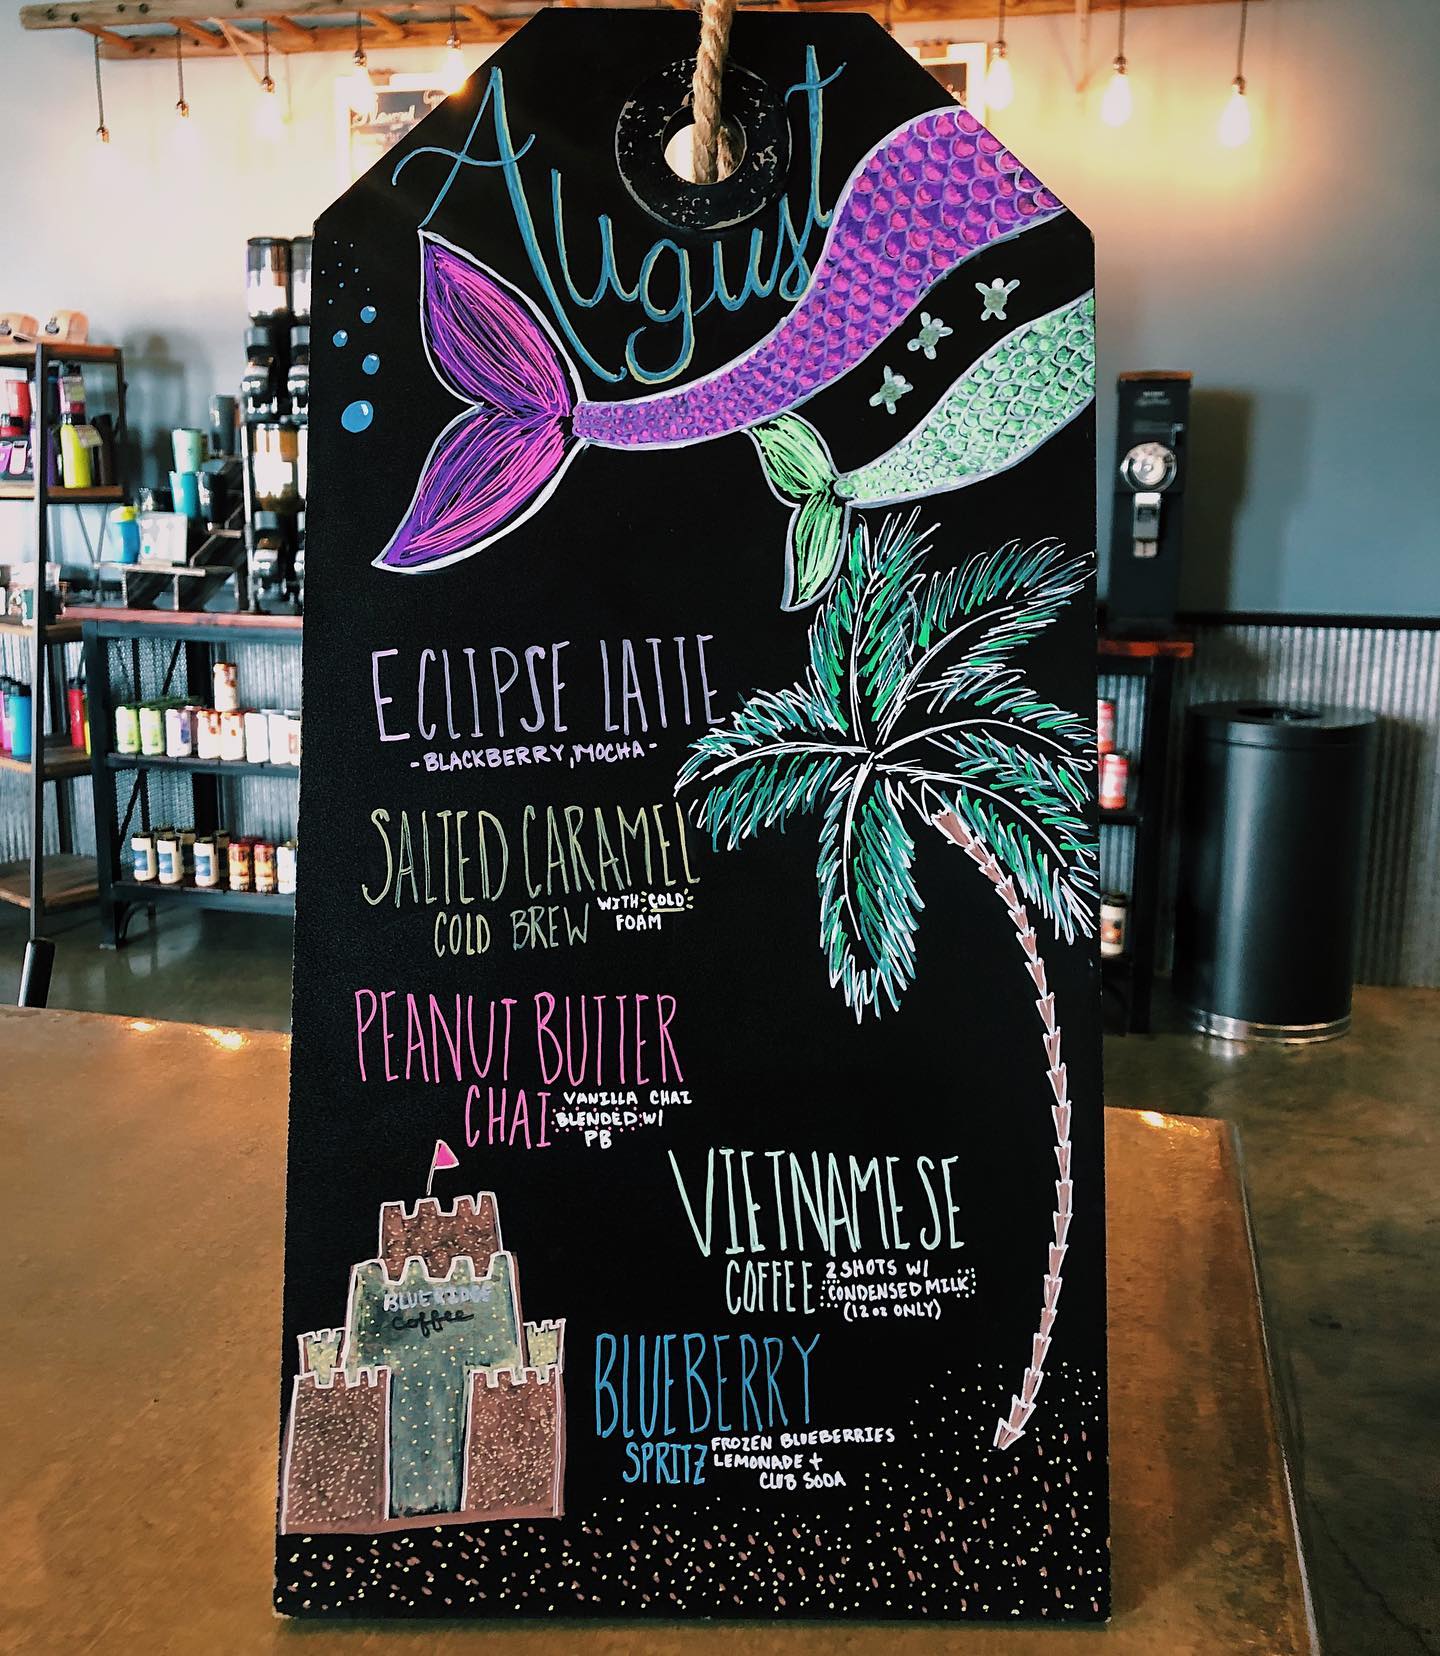 August
ECLIPSE LATTE
-BLACKBERRY, MOCHA-
SALTED CARAMEL
COLD BREW WITH COLD
FOAM
PEANUT BUTTER
CHAI VANILLA CHAI
BLENDED W/
PB
VIETNAMESE
COFFEE 2 SHOTS W/
CONDENSED MILK
(12oz ONLY)
BLUERIDGE
Coffee
BLUEBERRY
SPRITZ FROZEN BLUEBERRIES
LEMONADE +
CLUB SODA